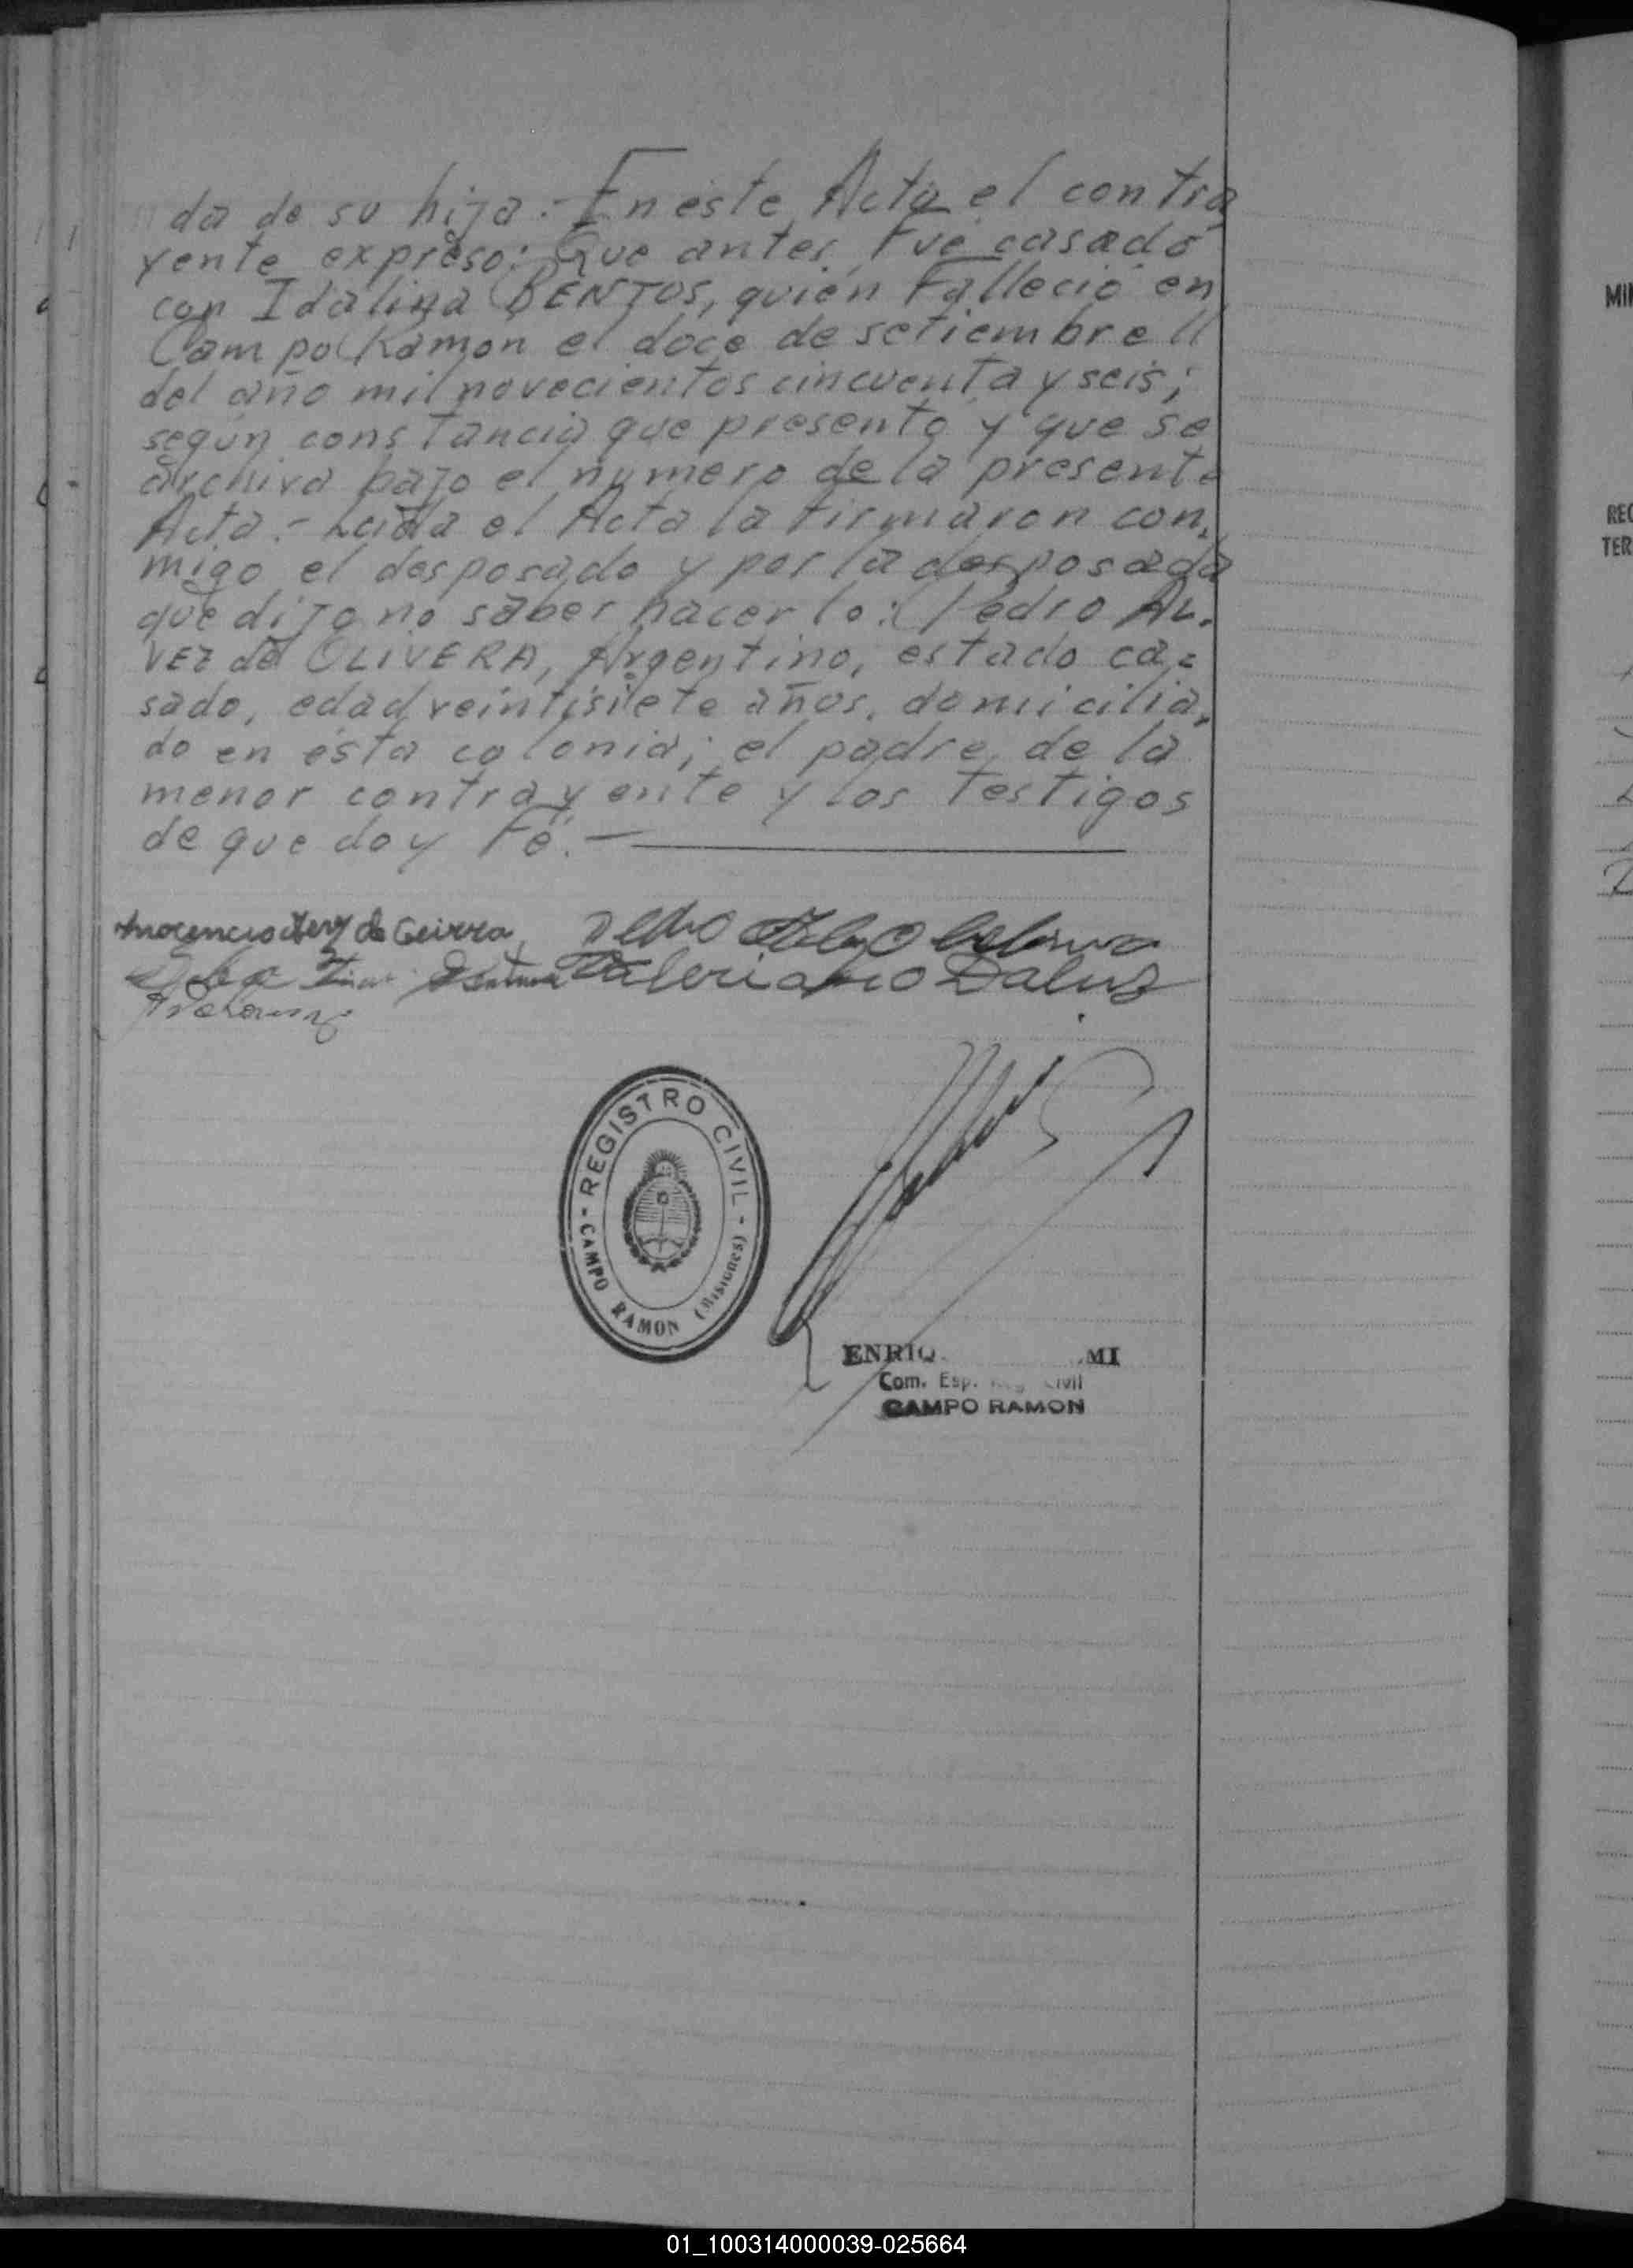 da de su hija.- En éste Acta el contra
yente expresó: Que antes Fué casado
con Idalina BENTOS, quién Falleció en
Campo Ramon el doce de setiembre //
del año mil novecientos cincuenta y seis;
según constancia que presentó y que se
archiva bajo el número de la presente
Acta.- Leída el Acta la Firmaron con,
migo el desposado y por la desposada
que dijo no saber hacerlo: Pedro AL.
VEZ de OLIVERA, Argentino, estado ca=
sado, edad veintisiete años, domicilia,
do en ésta colonia; el padre de la
menor contrayente y los Testigos
de que doy Fé.-
de
Valeriano Daluz
REGISTRO CIVIL
CAMPO RAMON (Misiones)
Com. Esp.
CAMPO RAMON
MI
REG
TER
01_100314000039-025664